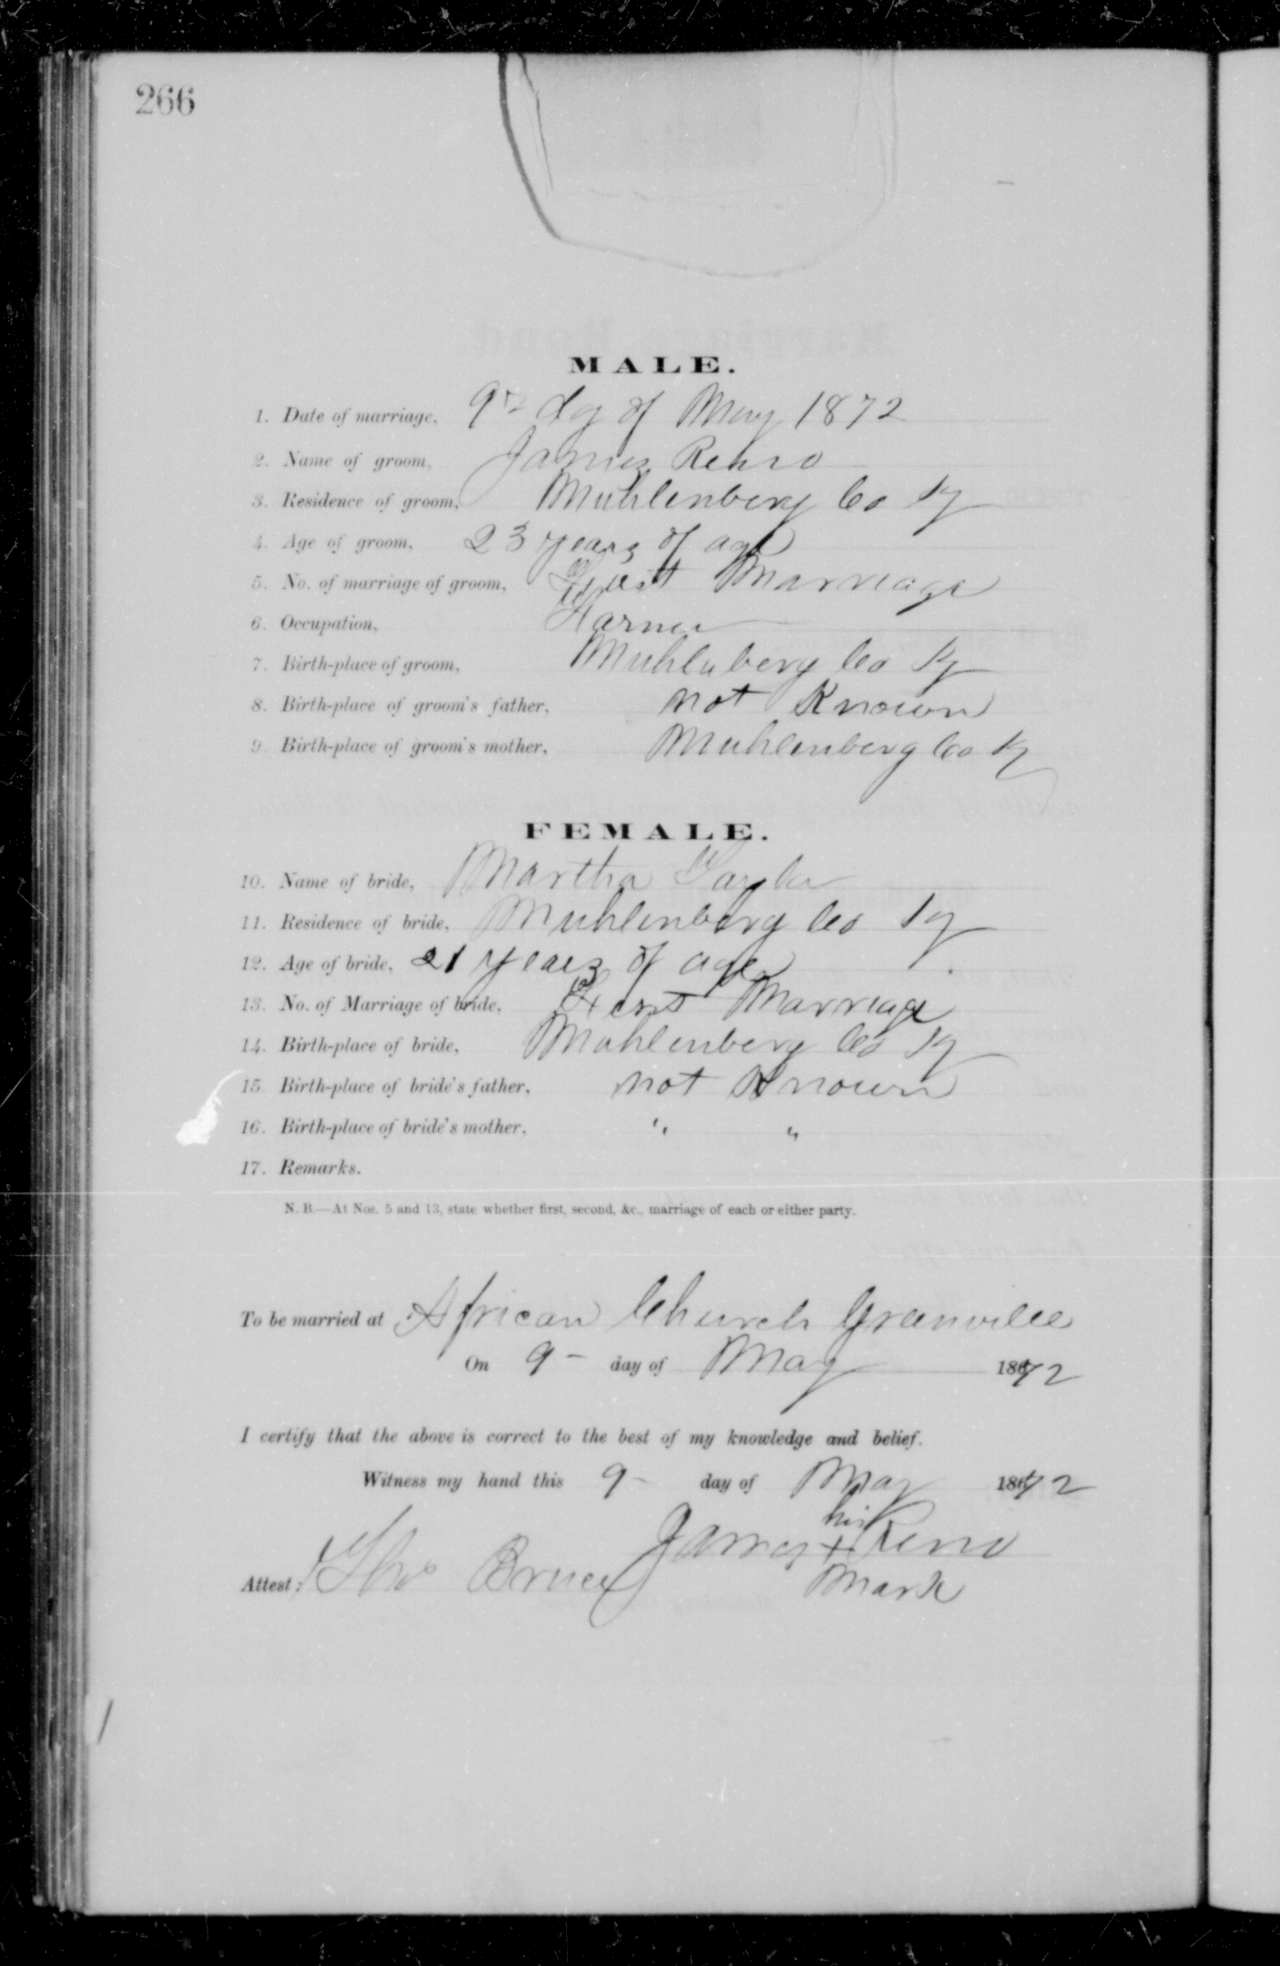 266
MALE.
1. Date of marriage, 9th dy of May 1872
2. Name of groom, James Reno
3. Residence of groom, Muhlenberg Co Ky
4. Age of groom, 23 years of age
5. No. of marriage of groom, First Marriage
6. Occupation, Farmer
7. Birth-place of groom, Muhlenberg Co Ky
8. Birth-place of groom's father, not Known
9. Birth-place of groom's mother, Muhlenberg Co Ky
FEMALE.
10. Name of bride, Martha Taylor
11. Residence of bride, Muhlenberg Co Ky
12. Age of bride, 21 years of age
13. No. of Marriage of bride, First Marriage
14. Birth-place of bride, Muhlenberg Co Ky
15. Birth-place of bride's father, not Known
16. Birth-place of bride's mother, " "
17. Remarks.
N. B.—At Nos. 5 and 13, state whether first, second, &c., marriage of each or either party.
To be married at African Church Greenville
On 9 - day of May 1872
I certify that the above is correct to the best of my knowledge and belief.
Witness my hand this 9 - day of May 1872
his
James + Reno
Attest: Tho Bruce mark